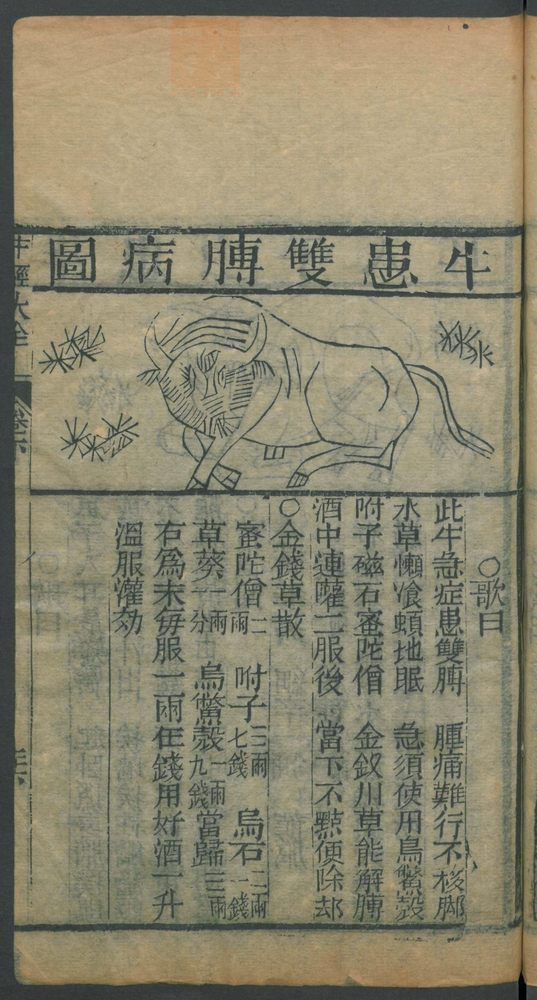 牛患雙膊病圖
○歌曰
此牛急症患雙膊　腫痛難行不梭脚
水草懶飡頻地眠　急須使用烏鱉殼
附子磁石蜜陀僧　金釵川草能解膊
酒中連嚾二服後　當下不㸃便除却
○金錢草散
蜜陀僧二兩　附子三兩七錢　烏石二兩一錢
草葵一兩一分　烏鱉殼一兩九錢　當歸三兩
右為末每服一兩五錢用好酒一升
溫服灌効
牛經大全
卷六